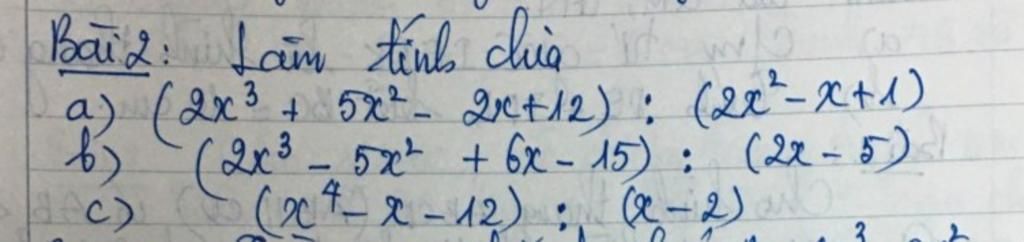 Bài 2: Làm tính chia
a) (2x³ + 5x² - 2x+12) : (2x² - x+1)
b) (2x³ - 5x² + 6x - 15) : (2x - 5)
c) (x⁴ - x - 12) : (x - 2)